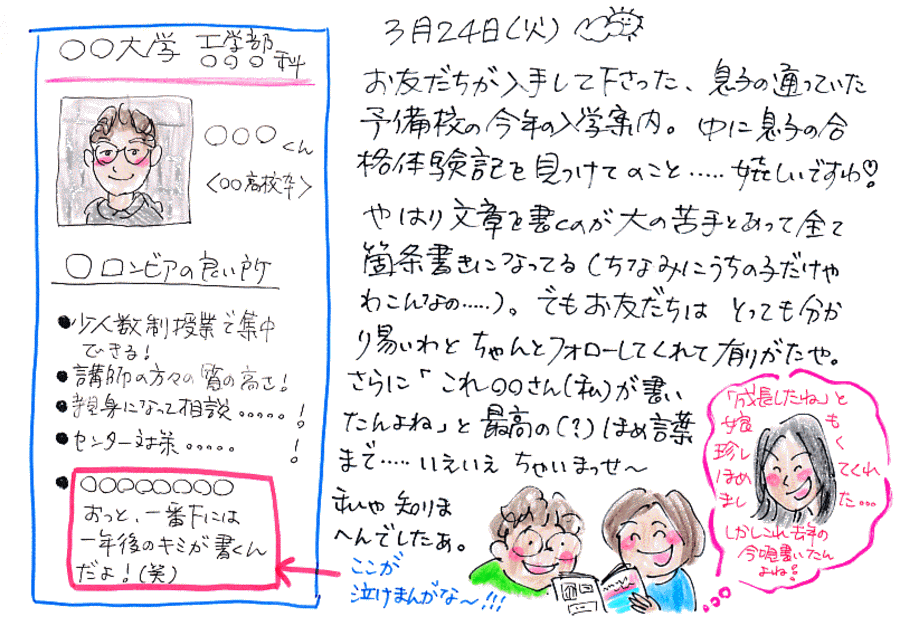 ○○大学 工学部
○○○科
○○○くん
<○○高校卒>
○ロンビアの良い所
●少人数制授業で集中
できる!
●講師の方々の質の高さ!
●親身になって相談.....!
●センター対策.....!
●○○○○○○○○
おっと、一番下には
一年後のキミが書くん
だよ!(笑)
3月24日(火)
お友だちが入手して下さった、息子の通っていた
予備校の今年の入学案内。中に息子の合
格体験記を見つけてのこと.....嬉しいですわ♡
やはり文章を書くのが大の苦手とあって全て
箇条書きになってる(ちなみにうちの子だけや
わこんなの.....)。でもお友だちは とっても分か
り易いわと ちゃんとフォローしてくれて有りがたや。
さらに「これ○○さん(私)が書い
たんよね」と最高の(?)ほめ言葉
まで.....いえいえ ちゃいまっせ~
わしゃ 知りま
へんでしたぁ。
ここが
泣けまんがな~!!!
「成長したね」と
娘も
珍しく
ほめてくれ
ました...
しかしこれ去年の
今頃書いたん
よね